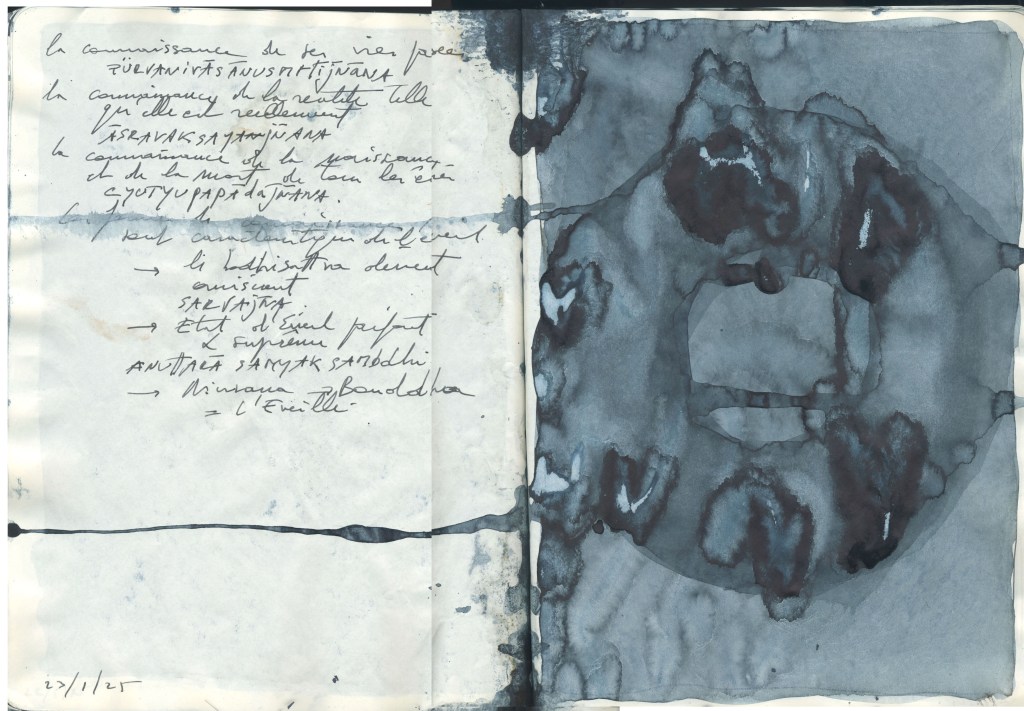 la connaissance de ses vies passées
PŪRVANIVĀSĀNUSMṚTIJÑĀNA
la connaissance de la réalité telle
qu'elle est réellement
ĀSRAVAKṢAYAJÑĀNA
la connaissance de la naissance
et de la mort de tous les êtres
CYUTYUPAPĀDAJÑĀNA.
sont caractéristiques de l'éveil
→ le bodhisattva devient
omniscient
SARVAJÑA
→ Etat d'éveil parfait
& suprême
ANUTTARĀ SAMYAK SAMBODHI
→ Nirvana → Bouddha
= l'Eveillé
23/1/25